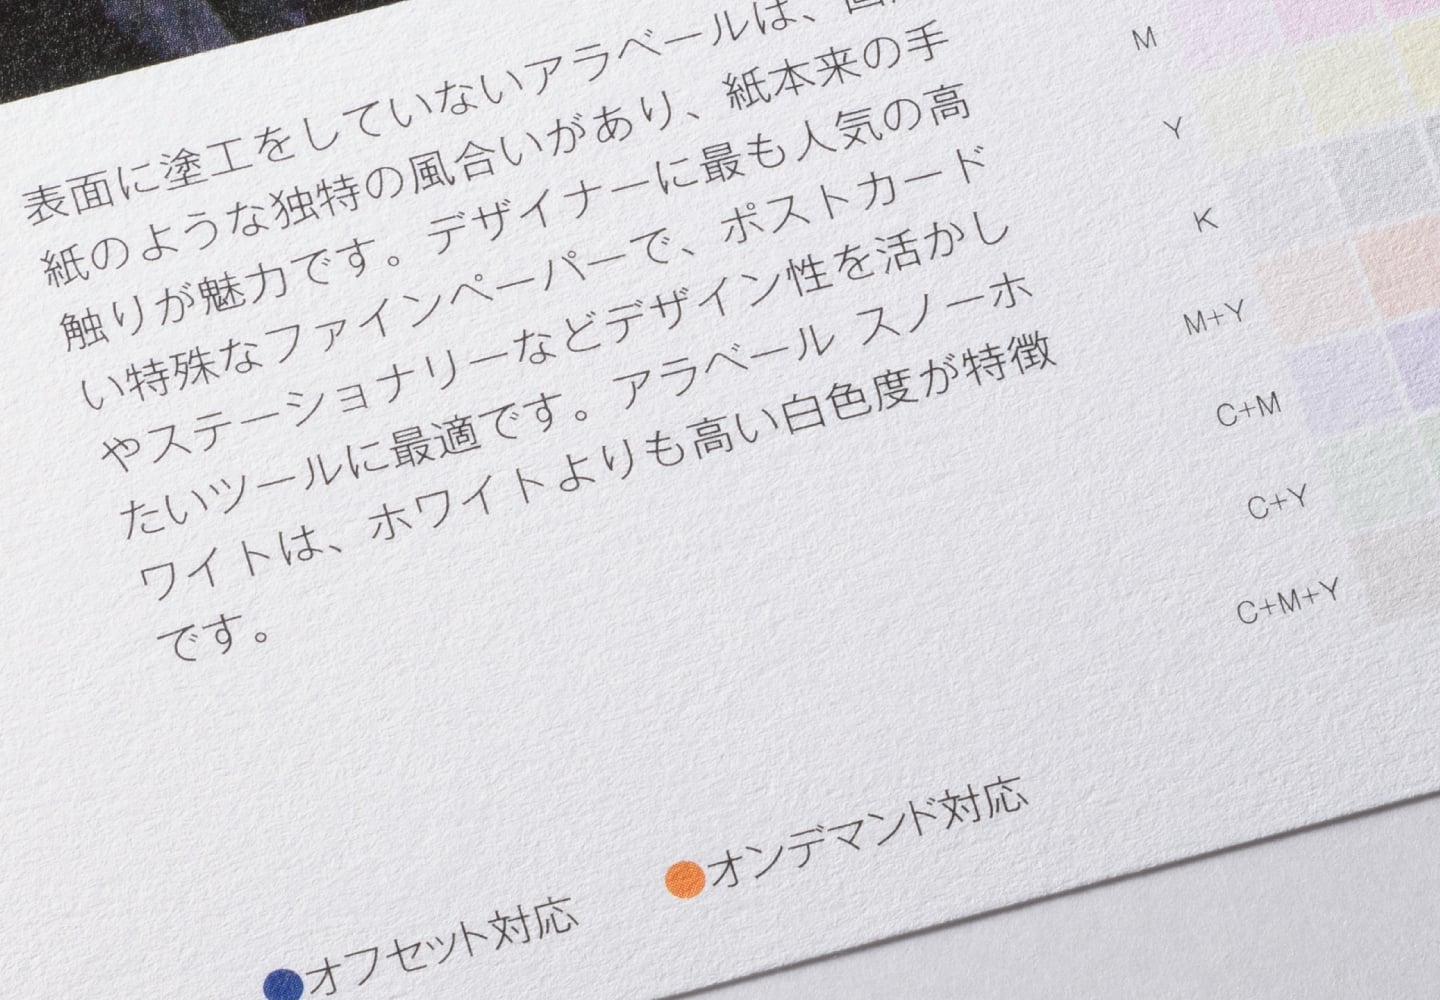 表面に塗工をしていないアラベールは、画
紙のような独特の風合いがあり、紙本来の手
触りが魅力です。デザイナーに最も人気の高
い特殊なファインペーパーで、ポストカード
やステーショナリーなどデザイン性を活かし
たいツールに最適です。アラベール スノーホ
ワイトは、ホワイトよりも高い白色度が特徴
です。
M
Y
K
M+Y
C+M
C+Y
C+M+Y
●オフセット対応
●オンデマンド対応